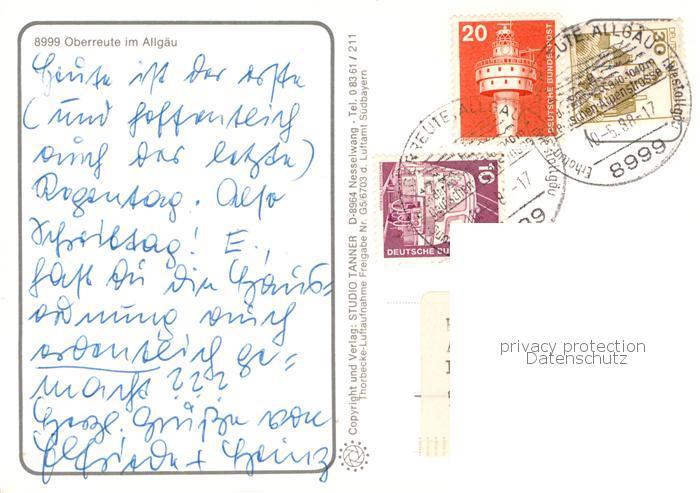 8999 Oberreute im Allgäu
Heute ist der erste
(und hoffentlich
auch der letzte)
Regentag. Also
Schreibtag! E.,
hast du die Haus-
ordnung auch
ordentlich ge=
macht???
Herzl. Grüße von
Elfriede + Heinz
Copyright und Verlag: STUDIO TANNER D-8964 Nesselwang · Tel. 0 83 61 / 211
Thorbecke-Luftaufnahme Freigabe Nr. GS/6703 d. Luftamt Südbayern
20
DEUTSCHE BUNDESPOST
30
10
DEUTSCHE BUNDES
REUTE, ALLGÄU
(Westallgäu)
schen Alpenstrasse
10.-5.88-17
8999
REUTE, ALLGÄU
-17
privacy protection
Datenschutz